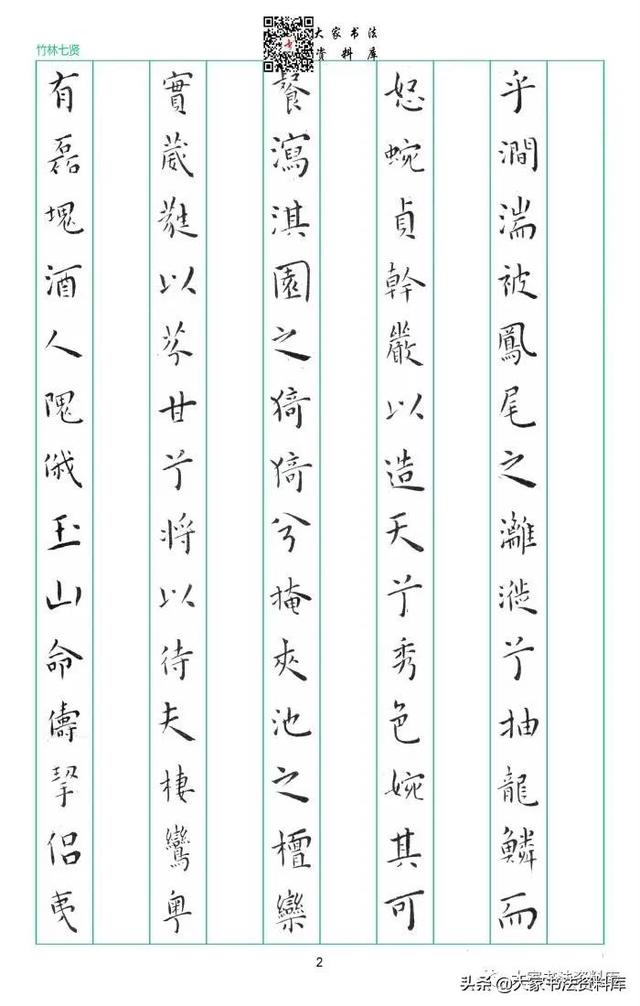 竹林七贤
大家书法
资料库
乎澗湍被鳳尾之灕漇兮抽龍鱗而
怒蜿貞幹嚴以造天兮秀色婉其可
餐瀉淇園之猗猗兮掩夾池之檀欒
實葳蕤以芬甘兮將以待夫棲鸞粵
有磊塊酒人隗俄玉山命儔挈侶夷
2
大家书法资料库
头条@大家书法资料库